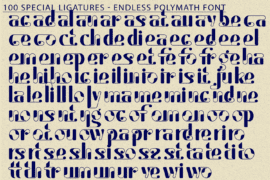 100 SPECIAL LIGATURES - ENDLESS POLYMATH FONT
ac ad al an ar as at au ay be ca
ce co ct ch de di ea ec ed ee el
em en ep er es et fe fo fr ge ha
he hi ho ic ie il in io ir is it ju ke
la le li ll lo ly ma me mi nc nd ne
no ns nt ng oc of om on oo op
or ot ou ow pa pr ra rd re ri ro
rs rt se sh si so ss st ta te ti to
tt th tr um un ur ve wi wo